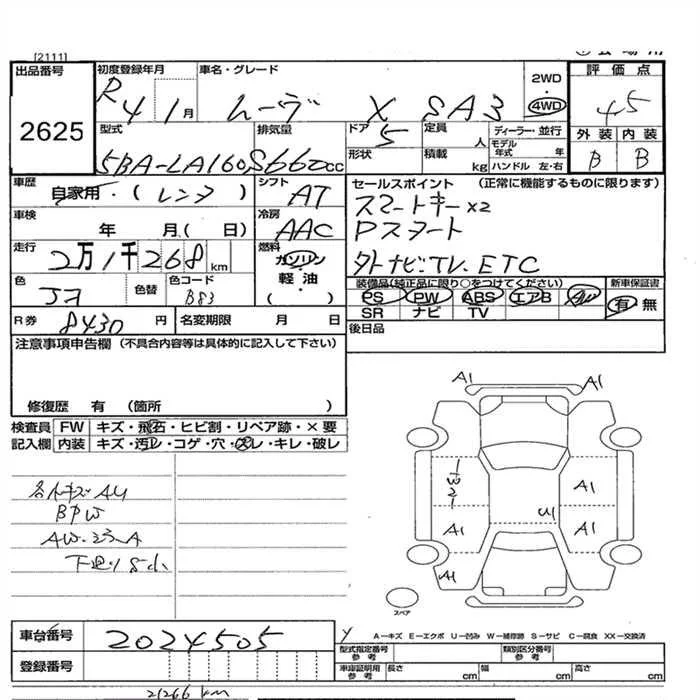 [2111]
出品番号
2625
初度登録年月
R 4 1 月
車名・グレード
ムーヴ X SA3
2WD
・
4WD
評価点
4.5
外装 内装
B B
型式
5BA-LA160S
排気量
660cc
ドア
5
形状
定員 人
積載 kg
ディーラー・並行
モデル年式 年
ハンドル 左・右
車歴
自家用・(レンタ)
シフト
AT
車検
年 月(日)
冷房
AAC
走行
2万1千268km
燃料
ガソリン
軽油
( ・ )
色
色替
色コード
B83
R券
8430円
名変期限 月 日
セールスポイント (正常に機能するものに限ります)
スマートキー×2
Pスタート
外ナビ.TV.ETC
装備品(純正品に限り○をつけてください)
PS PW ABS エアB AW
SR ナビ TV
新車保証書
有 無
後日品
注意事項申告欄(不具合内容等は具体的に記入して下さい)
修復歴 有 (箇所 )
検査員記入欄
FW キズ・飛石・ヒビ割・リペア跡・×要
内装 キズ・汚レ・コゲ・穴・スレ・キレ・破レ
BPW
下廻りS小
A1
A1
A1
A1
A1
A1
A1
W2
U1
スペア
A－キズ E－エクボ U－凹み W－補修跡 S－サビ C－腐食 XX－交換済
車台番号
2024505
登録番号
型式指定番号参考
類別区分番号参考
車庫証明用参考
長さ cm
幅 cm
高さ cm
21266 km